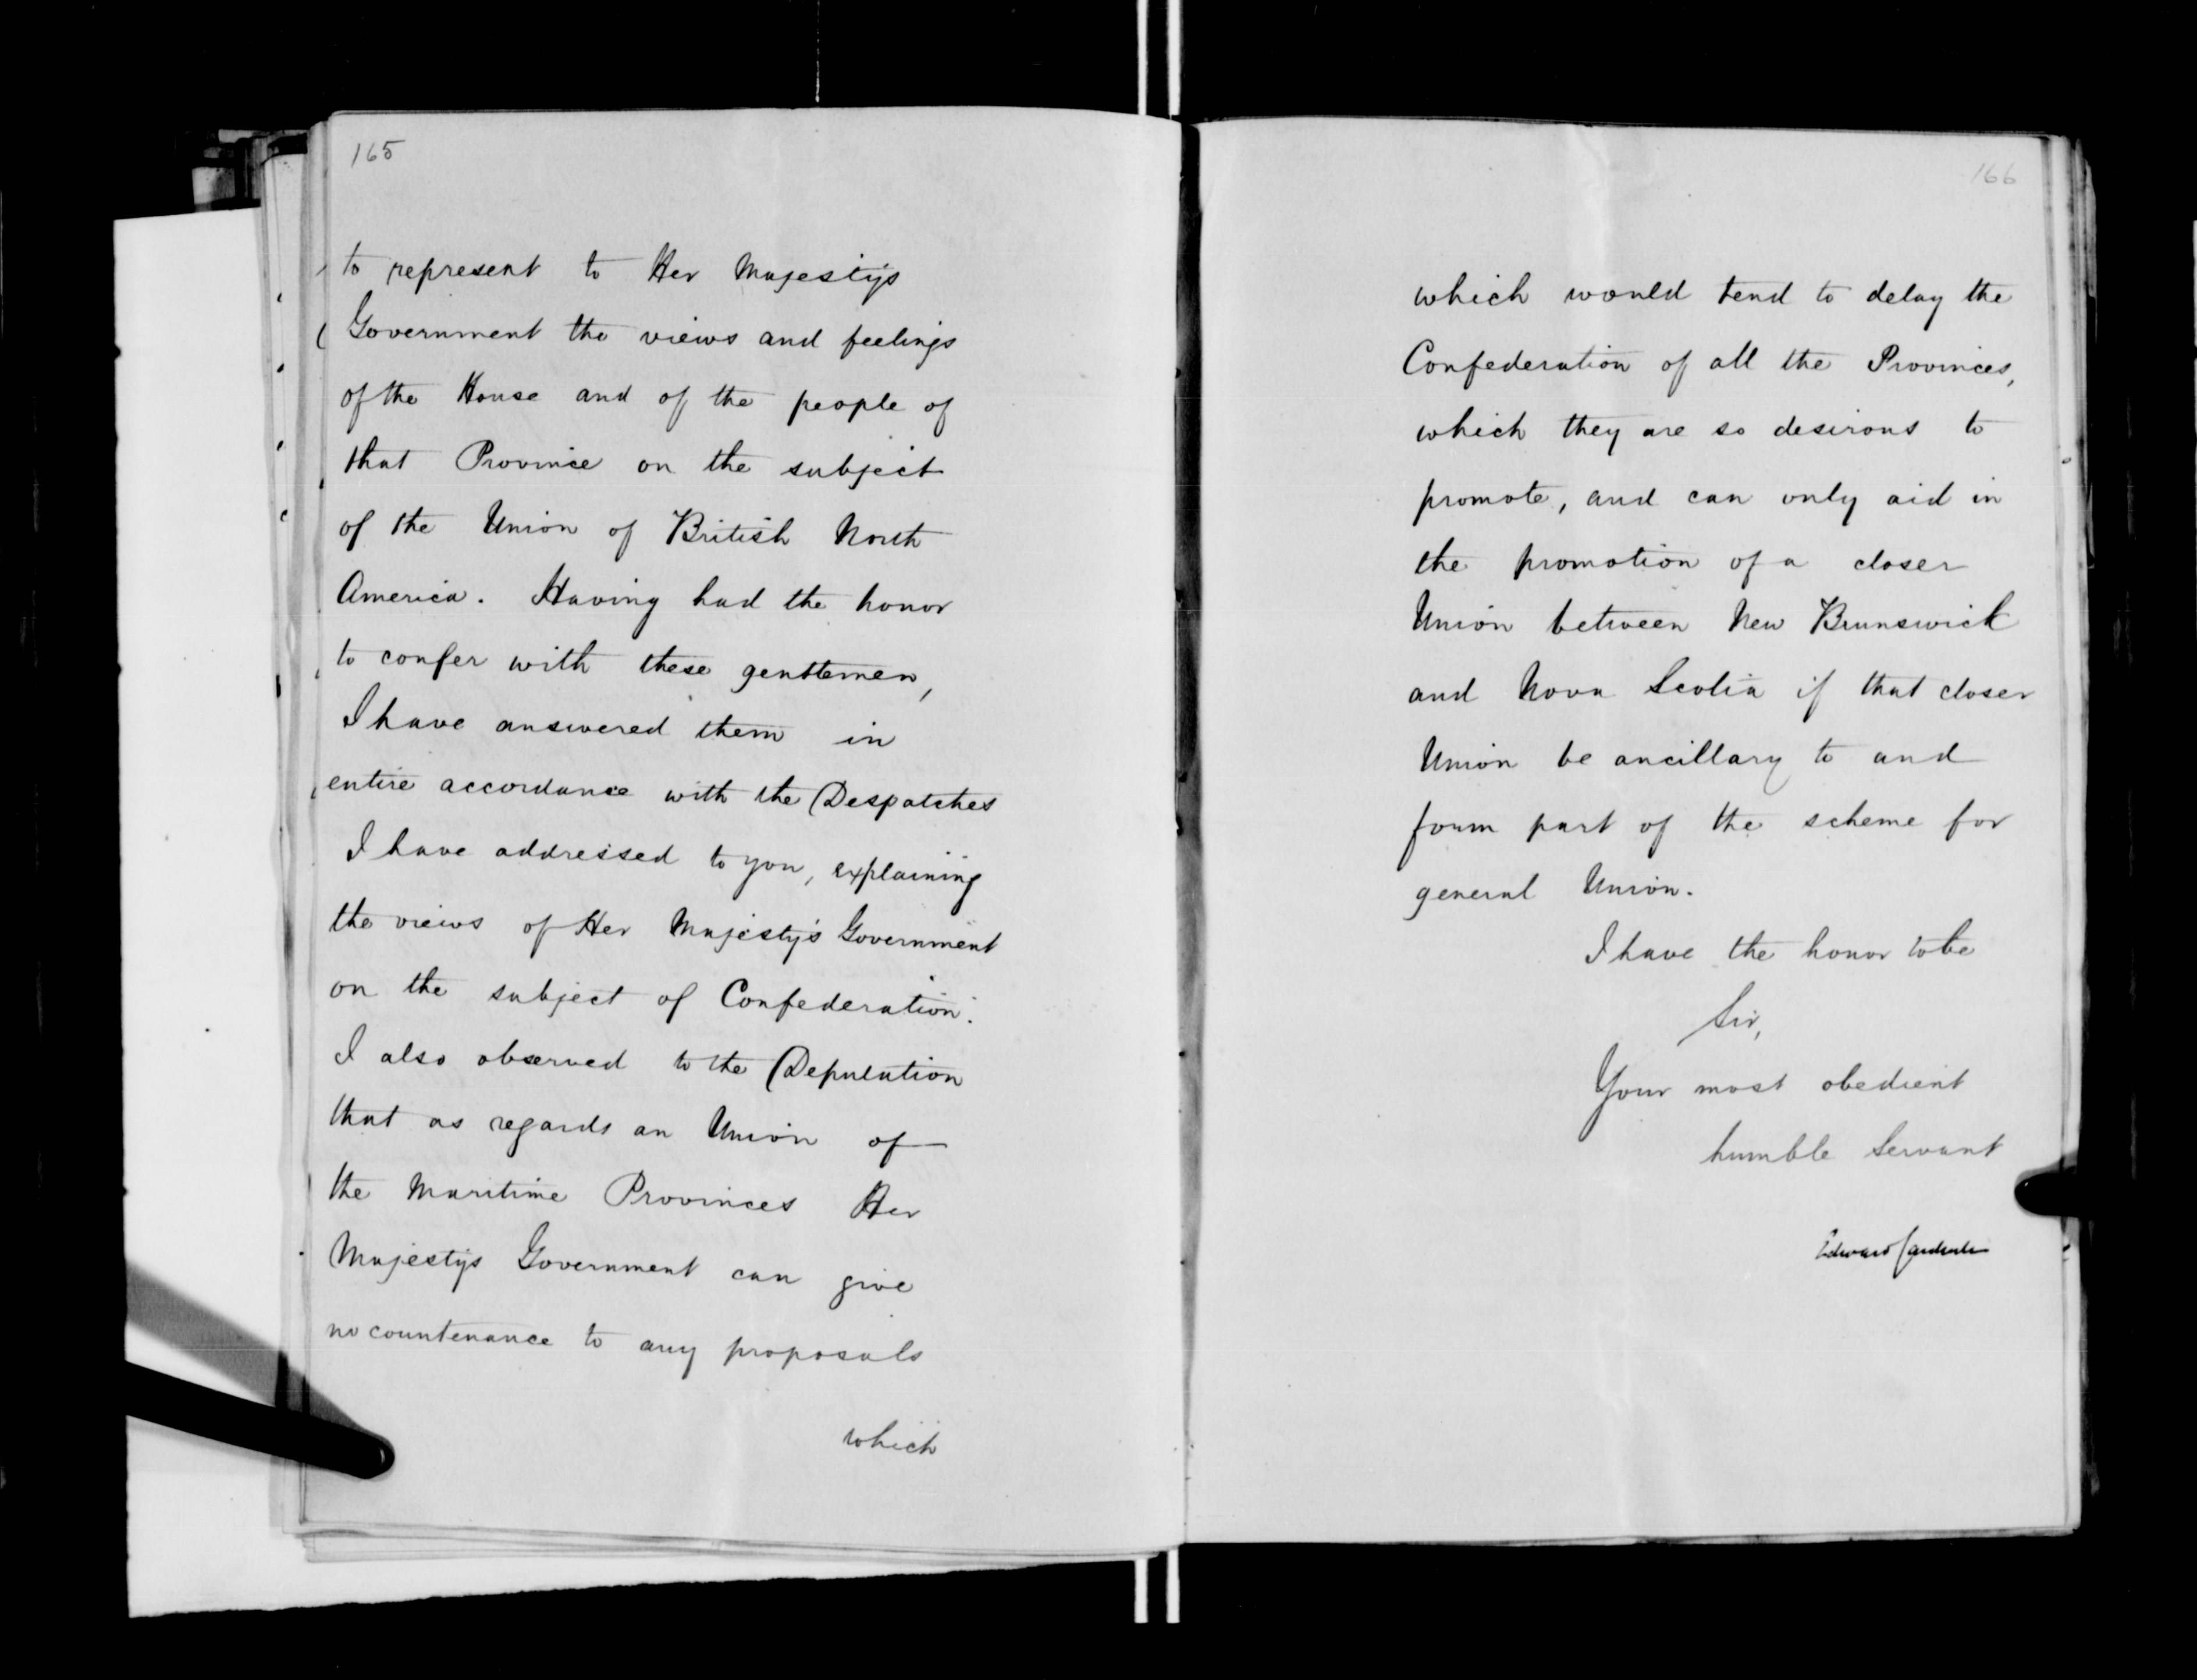 165
to represent to Her Majestys
Government the views and feelings
of the House and of the people of
that Province on the subject
of the Union of British North
America. Having had the honor
to confer with these gentlemen,
I have answered them in
entire accordance with the Despatches
I have addressed to you, explaining
the views of Her Majesty's Government
on the subject of Confederation.
I also observed to the Deputation
that as regards an Union of
the Maritime Provinces Her
Majestys Government can give
no countenance to any proposals
which
166
which would tend to delay the
Confederation of all the Provinces,
which they are so desirous to
promote, and can only aid in
the promotion of a closer
Union between New Brunswick
and Nova Scotia if that closer
Union be ancillary to and
form part of the scheme for
general Union.
I have the honor to be
Sir,
Your most obedient
humble Servant
Edward Cardwell